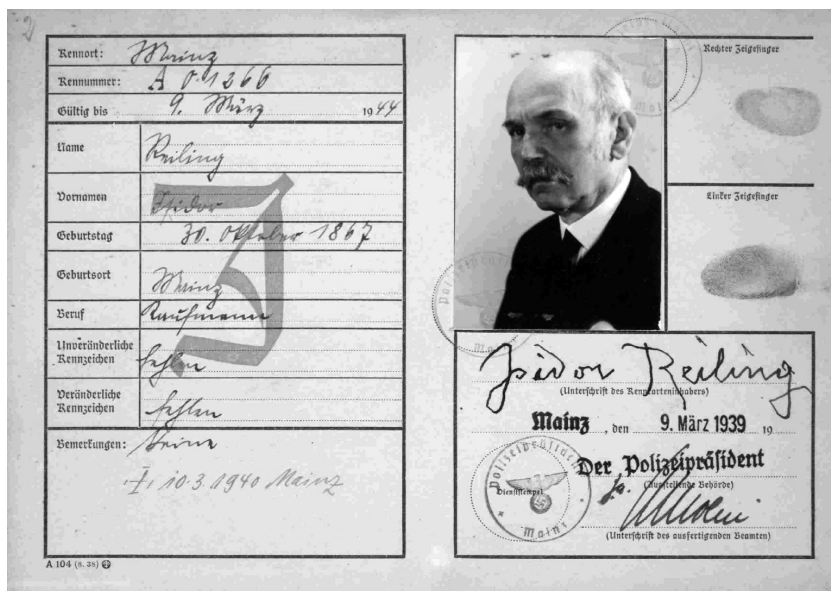 2
Kennort: Mainz
Kennummer: A 01266
Gültig bis 9. März 1944
Name Reiling
Vornamen Isidor
Geburtstag 30. Oktober 1867
Geburtsort Mainz
Beruf Kaufmann
Unveränderliche
Kennzeichen fehlen
Veränderliche
Kennzeichen fehlen
Bemerkungen: Keine
10.3.1940 Mainz
A 104 (8. 38)
J
Rechter Zeigefinger
Linker Zeigefinger
Mainz
Isidor Reiling
(Unterschrift des Kennkarteninhabers)
Mainz, den 9. März 1939 19
Der Polizeipräsident
(Ausstellende Behörde)
Polizeipräsident
Dienststempel
Mainz
(Unterschrift des ausfertigenden Beamten)